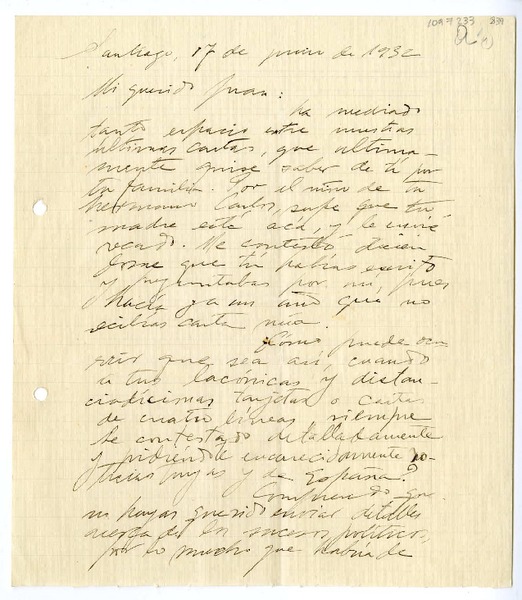 Santiago, 17 de junio de 1932
Mi querido Juan:
ha mediado
tanto espacio entre nuestras
últimas cartas, que última-
mente quise saber de ti por
tu familia. Por el niño de tu
hermano Carlos, supe que tu
madre está acá, y le envié
recado. Me contestó dicien
dome que tú habías escrito
y preguntabas por mí, pues
hacía ya un año que no
recibías carta mía.
Cómo puede ocu
rrir que sea así, cuando
a tus lacónicas y distan-
ciadísimas tarjetas o cartas
de cuatro líneas siempre
he contestado detalladamente
y pidiendote encarecidamente no-
ticias tuyas y de España?
Comprendo que
no hayas querido enviar detalles
acerca de los sucesos políticos,
por lo mucho que habría de